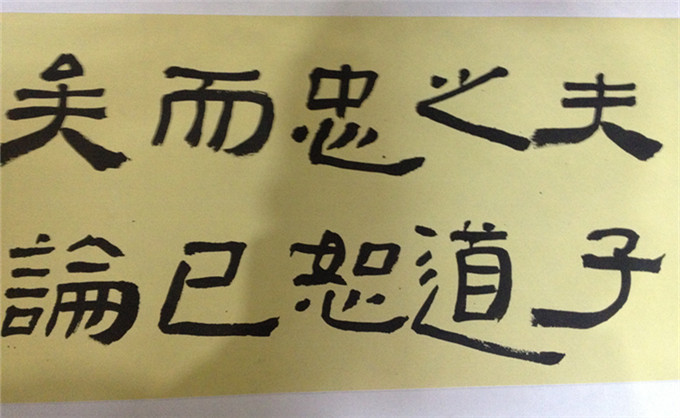 夫子
之道
忠恕
而已
矣論